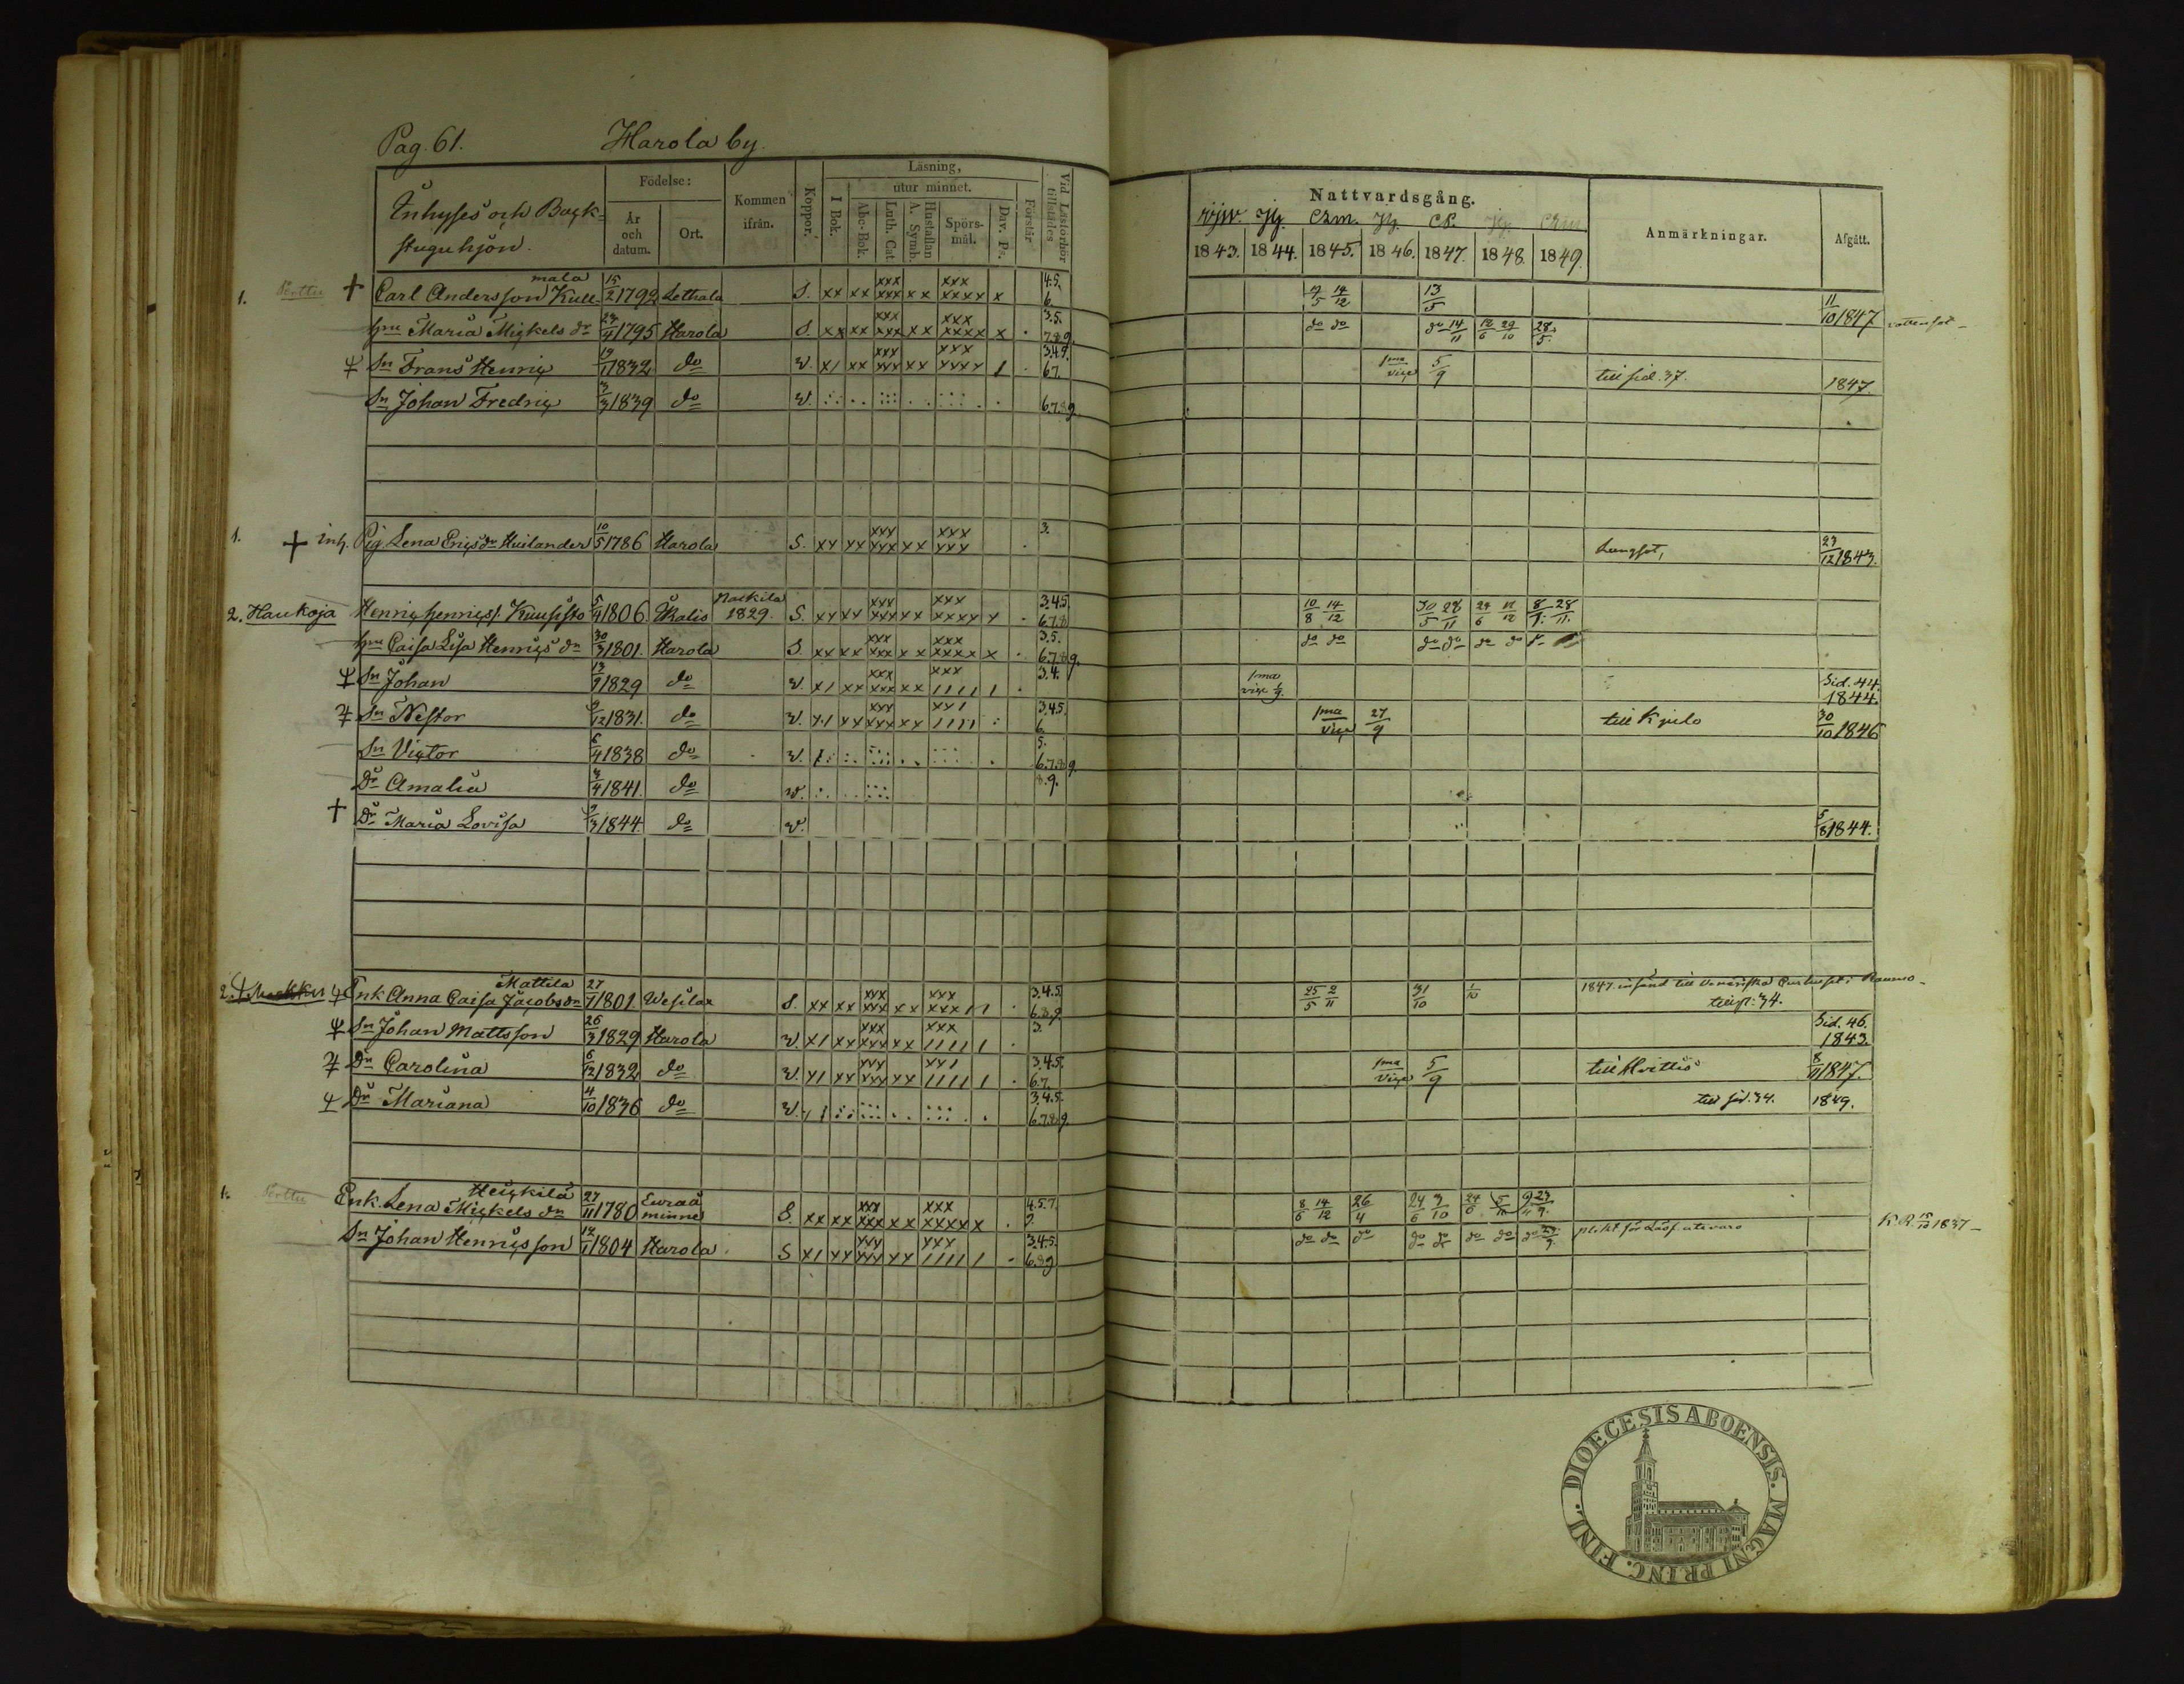 Pag. 61. Harola by.
Inhyses och Back-
stuguhjon.
Födelse:
År och datum.
Ort.
Kommen ifrån.
Koppor.
Läsning,
utur minnet.
I Bok.
Abc-Bok.
Luth. Cat.
Hustaflan A. Symb.
Spörsmål.
Dav. Ps.
Förstår
Vid Läsförhör tillstädes
Nattvardsgång.
1843. 1844. 1845. 1846. 1847. 1848. 1849.
Anmärkningar.
Afgått.
1. Perttu † Carl Andersson Kull-mala 15/2 1792 Lethala S. xx xx xxx xxx xx xxx xxxx x 4.5. 6. 14/12 13/5 11/10 1847 vattensot
hu Maria Mickels dr 1795 Harola S. xx xx xxx xxx xx xxx xxxx x 3.5. 7.8.9. do do do 14/11 29/10 28/5
Sn Frans Henric 1832 do V. x/ xx xxx xxx xx xxx xxxx / 3.4.9. 6.7. 1ma vice 5/9 till sid. 37. 1847.
Sn Johan Fredric 3/3 1839 do V. 6.7.8.9
1. † inh. Pig. Lena Erics dr Huilander 10/5 1786 Harola S. xx xx xxx xxx xx xxx xxx 3. lungsot, 23/12 1843.
2. Haukoja Henric Henrics. Kuusisto 5/4 1806. Ukalis Nackila 1829. S. xx xx xxx xxx xx xxx xxxx x 3.4.5. 6.7.8 10/8 14/12 30/5 28/11 28/11.
hu Caisa Lisa Henrics dr 30/3 1801. Harola S. xx xx xxx xxx xx xxx xxxx x 3.5. 6.7.8.9. do do do do do do
Sn Johan 1829 do V. x/ xx xxx xxx xx xxx //// / 3.4. 1ma vice Sid. 44. 1844.
Sn Nestor 1831. do V. x/ xx xxx xxx xx xx/ //// 3.4.5. 6. 1ma vice 27/9 till Kiulo 30/10 1846
Sn Victor 6/4 1838 do V. 5. 6.7.8.9.
Dr Amalia 1841. do V. 8.9.
† Dr Maria Lovisa 1844. do V. 5/8 1844.
2. Enk Anna Caisa Jacobs dr Mattila 27/7 1801 Wesilax S. xx xx xxx xxx xx xxx xxx // 3.4.5. 6.8.9 25/5 2/11 31/10 1/10 1847 insänd till Veneriska Curhuset i Raumo
till p. 34.
Sn Johan Mattsson 26/3 1829 Harola V. x/ xx xxx xxx xx xxx //// / 3. Sid. 46. 1843.
Dr Carolina 6/12 1832 do V. x/ xx xxx xxx xx xx/ //// / 3.4.5. 6.7. 1ma vice 5/9 till Hvittis 8/11 1847.
Dr Mariana 4/10 1836 do V. 3.4.5. 6.7.8.9. till sid. 34. 1849.
1. Perttu Enk. Lena Mickels dr Heickilä 27/11 1780 Euraå minne S. xx xx xxx xxx xx xxx xxxx x 4.5.7. 9. 8/6 14/12 26/4 24/6 3/10 24/6
Sn Johan Henricsson 1804 Harola S x/ xx xxx xxx xx xxx //// / 3.4.5. 6.8.9 do do do do do do do plikt för Läsf. utevaro K.R. 1837
DIOECESIS ABOENSIS. MAGNI PRINC. FINL.